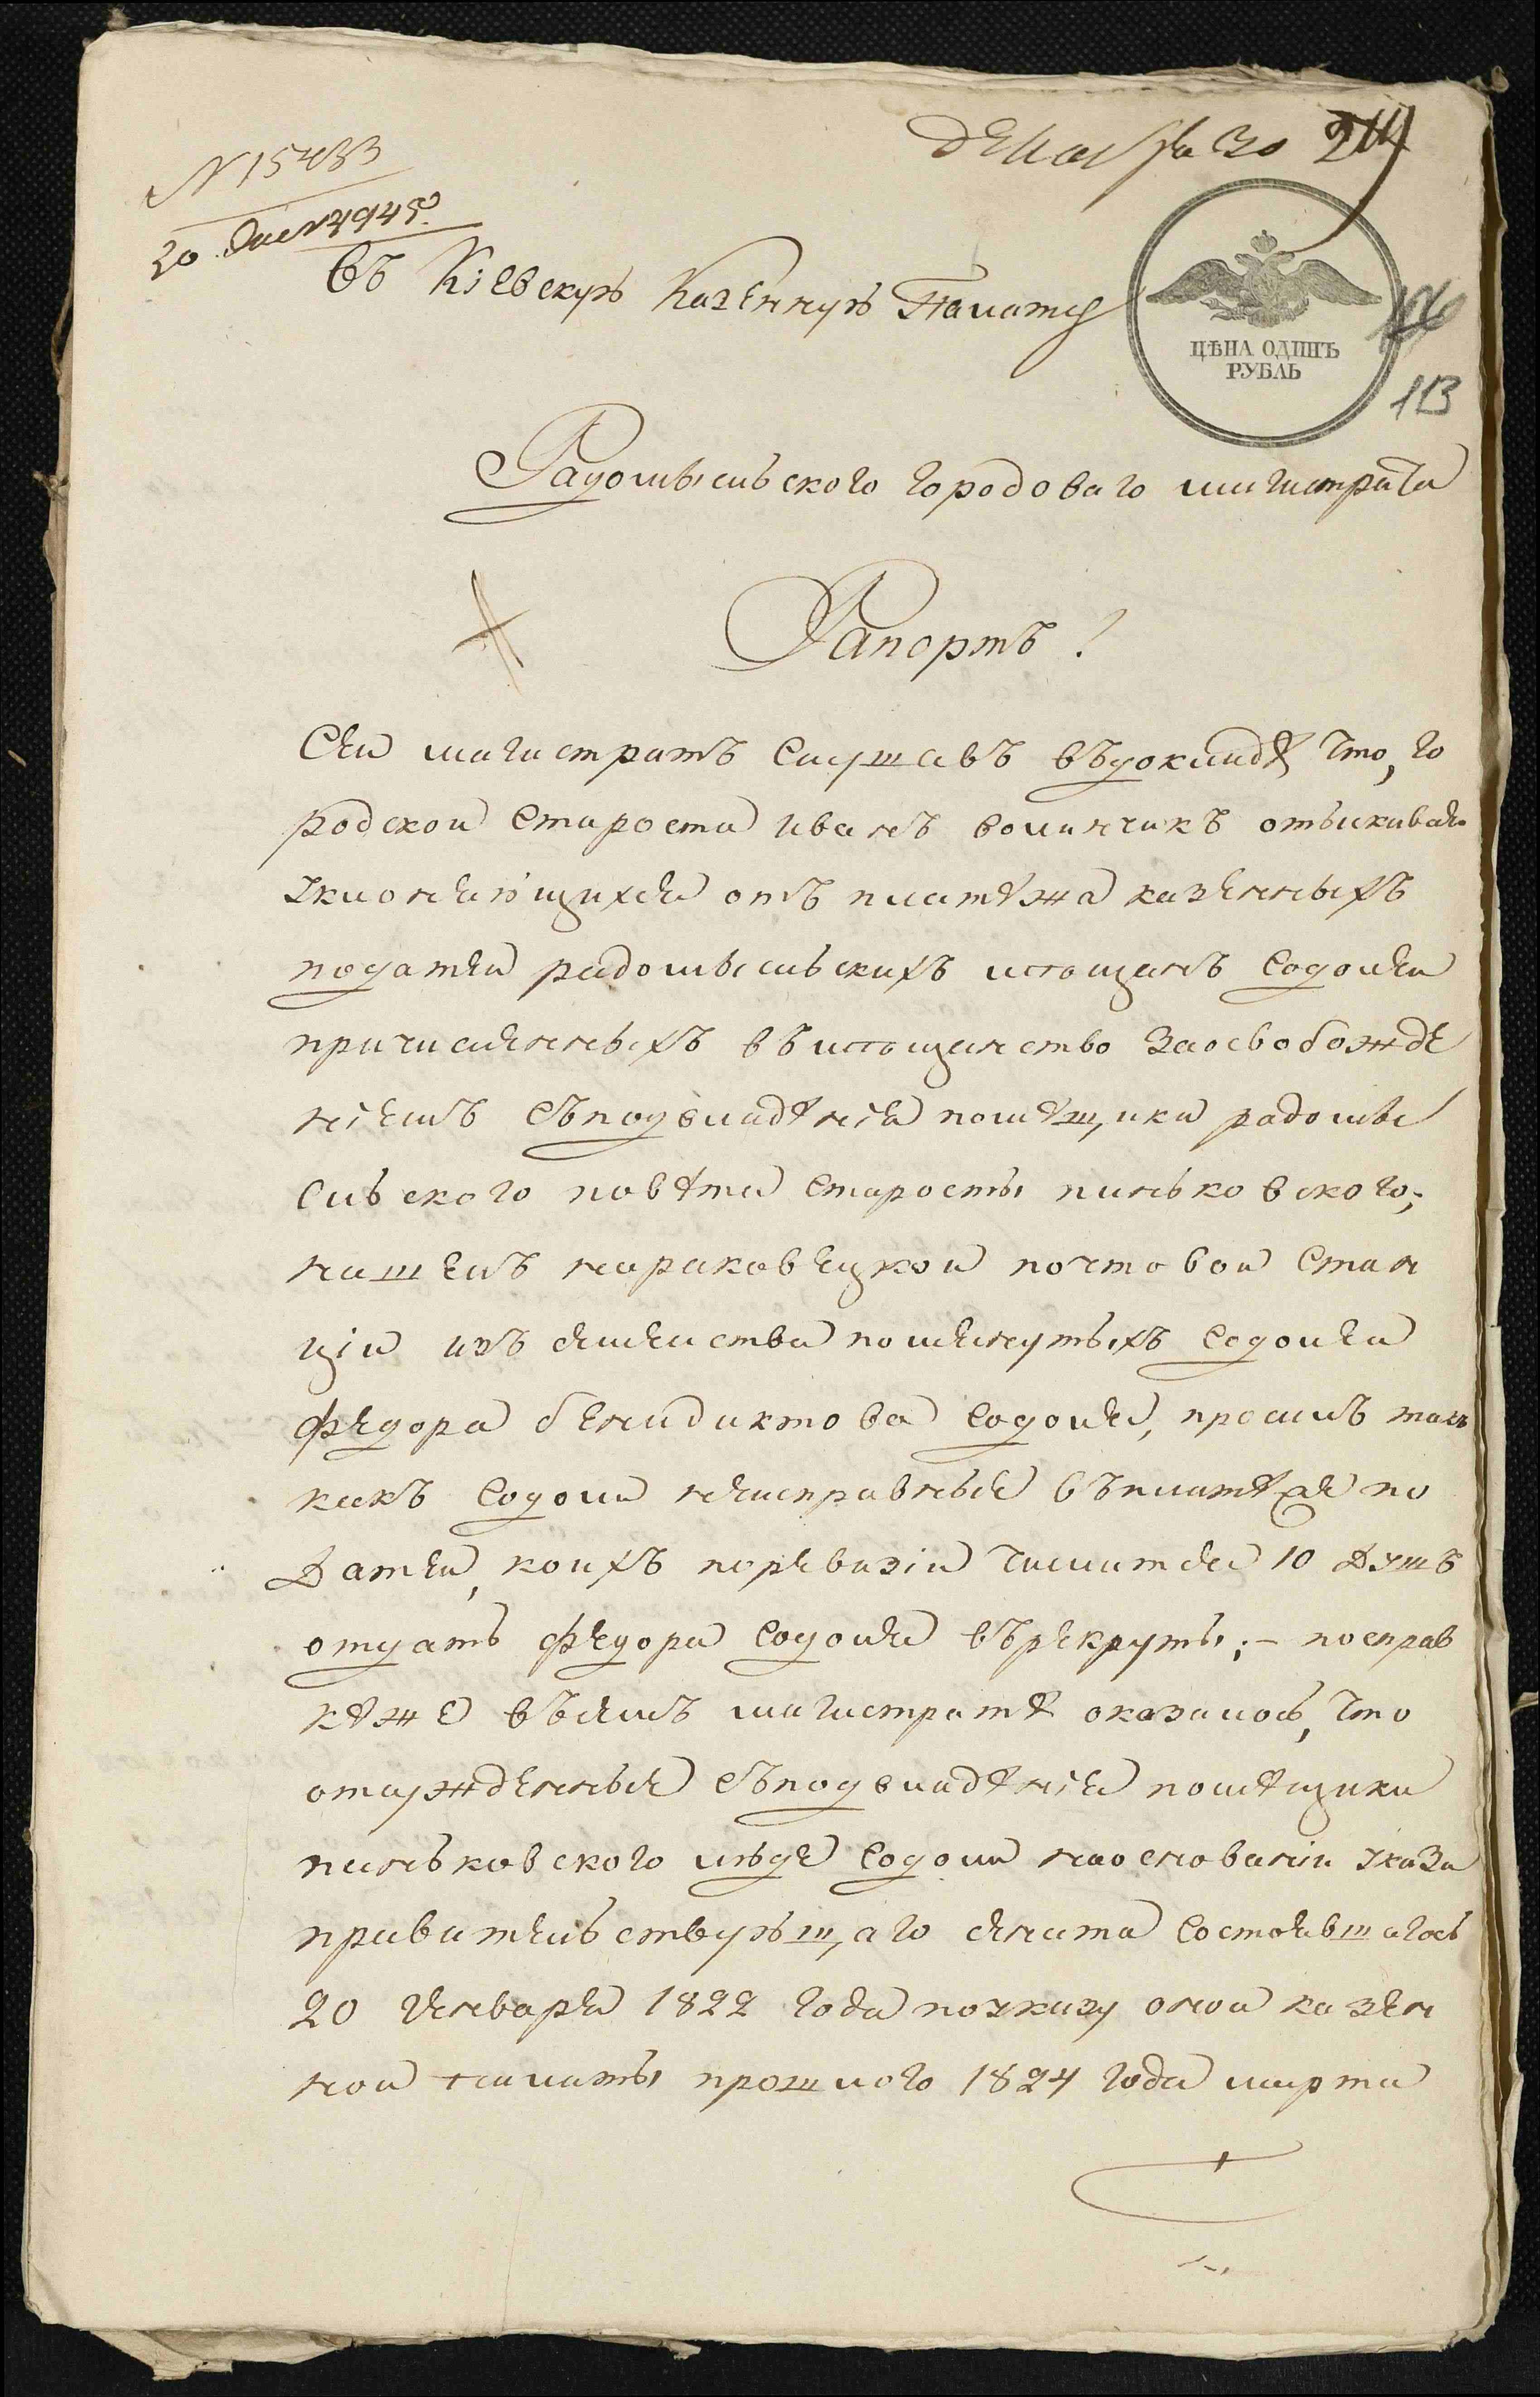 N 15433
20 Дек
Декабря 30
Въ Кіевскую Казенную Палату
ЦѢНА ОДИНЪ
РУБЛЬ
113
Радомысльского городоваго магистрата
Рапортъ!
Сей магистратъ слушавъ въдокладѣ что, го
родской староста иванъ волинчикъ отыскивая
уклоняющихся отъ платѣжа казенныхъ
податей радомысльскихъ мѣщанъ Содоля
причисленныхъ вѣ мѣщанство заосвобожде
ніемъ сѣподвладѣнія помѣщика радомы
сльского повѣта старосты пиньковского,
нашелъ нараковецкой почтовой стан
ціи изъ семейства помянутыхъ Содоля
федора бенидиктова Содоля, просилъ такъ
какъ Содоли неисправные въплатѣже по
датей, коихъ поревизіи числится 10 душъ
отдать федора Содоля върекруты; - посправ
кѣже въсемъ магистратѣ оказалось, что
отсужденные сѣподвладѣнія помѣщика
пиньковского люде Содоли наоснованіи указа
правительствующаго сената состоявшагось
20 генваря 1822 года поуказу оной казен
ной палаты прошлого 1824 года марта